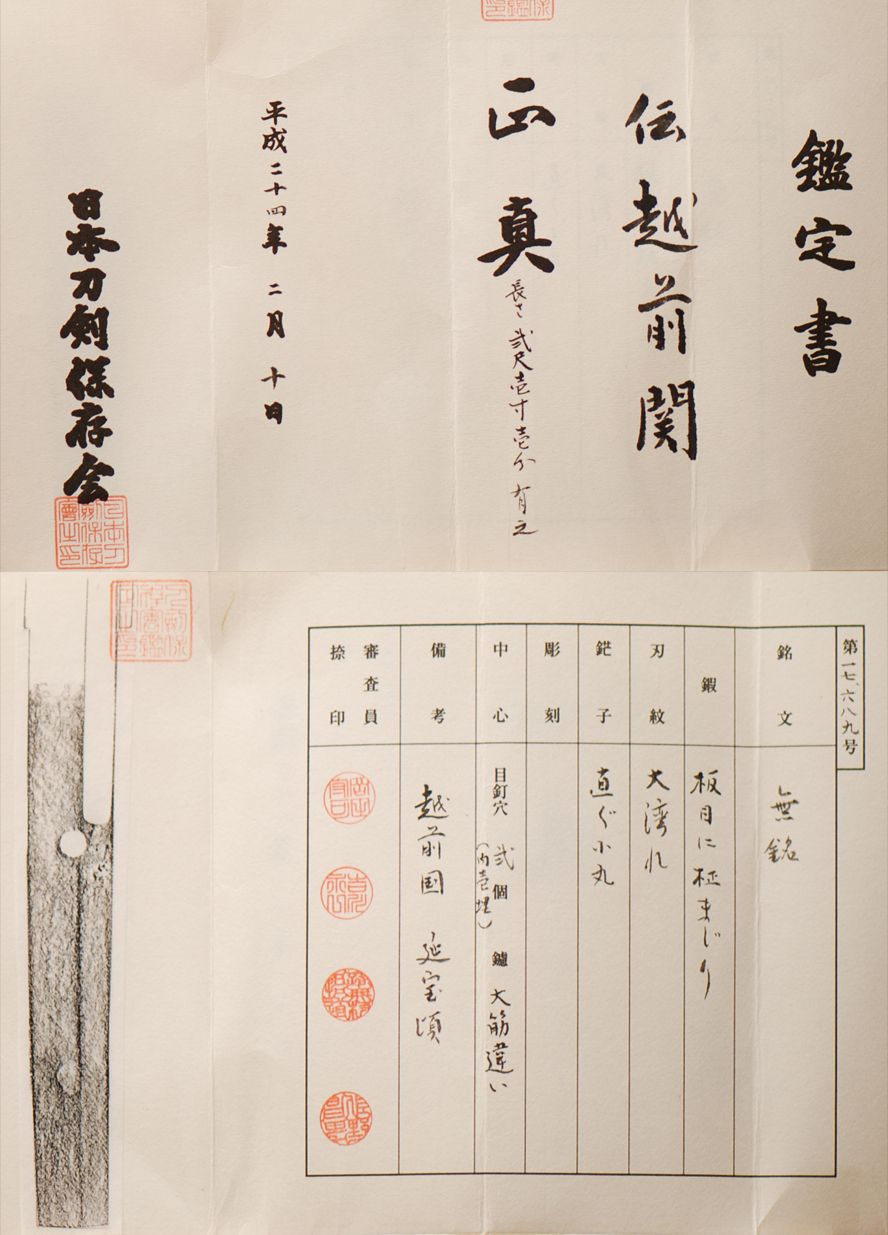 鑑定書
伝越前関
正真
長さ弐尺壱寸壱分有之
平成二十四年二月十日
日本刀剣保存会
第一七、六八九号
銘文
無銘
鍜
板目に柾まじり
刃紋
大湾れ
鋩子
直ぐ小丸
彫刻
中心
目釘穴 弐個 鑢 大筋違い
(内壱埋)
備考
越前国 延宝頃
審査員
捺印